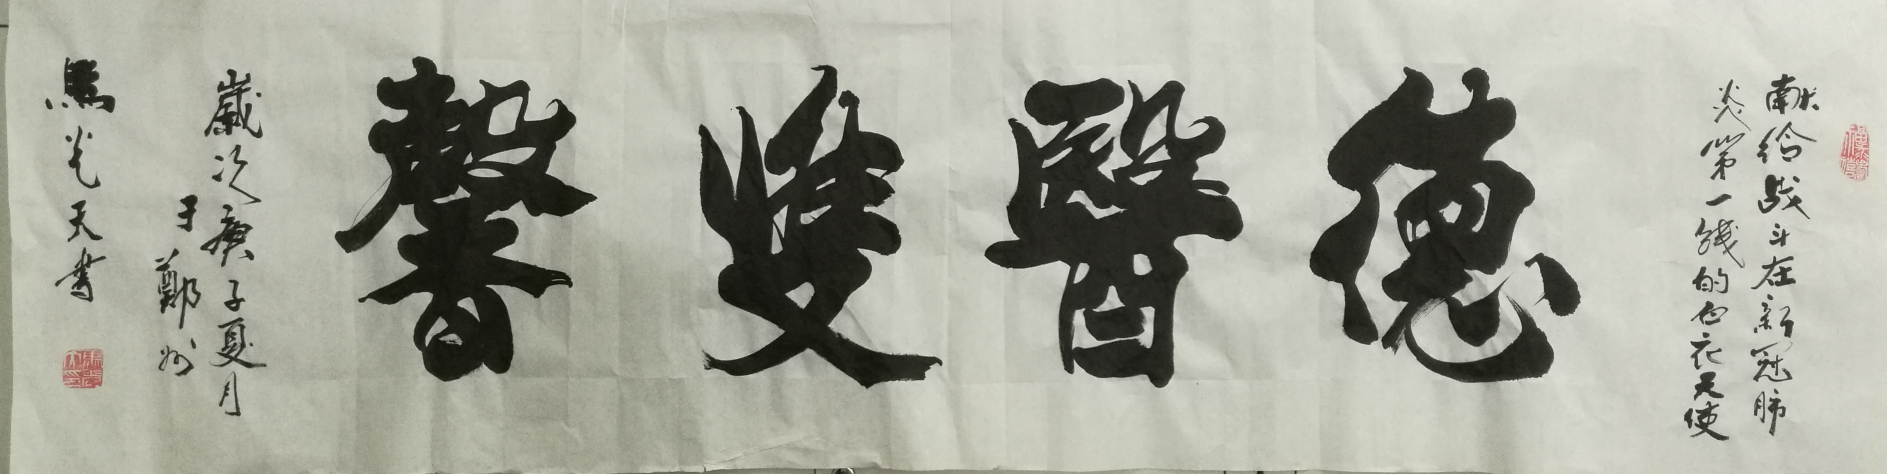 献给战斗在新冠肺
炎第一线的白衣天使
德醫雙馨
歲次庚子夏月
于鄭州
馬光天書